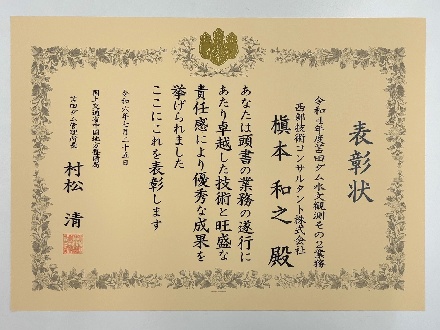 表彰状
令和4年度苫田ダム水文観測その2業務
西部技術コンサルタント株式会社
槇本 和之 殿
あなたは頭書の業務の遂行に
あたり卓越した技術と旺盛な
責任感により優秀な成果を
挙げられました
ここにこれを表彰します
令和六年七月二十五日
国土交通省中国地方整備局
苫田ダム管理所長
村松 清